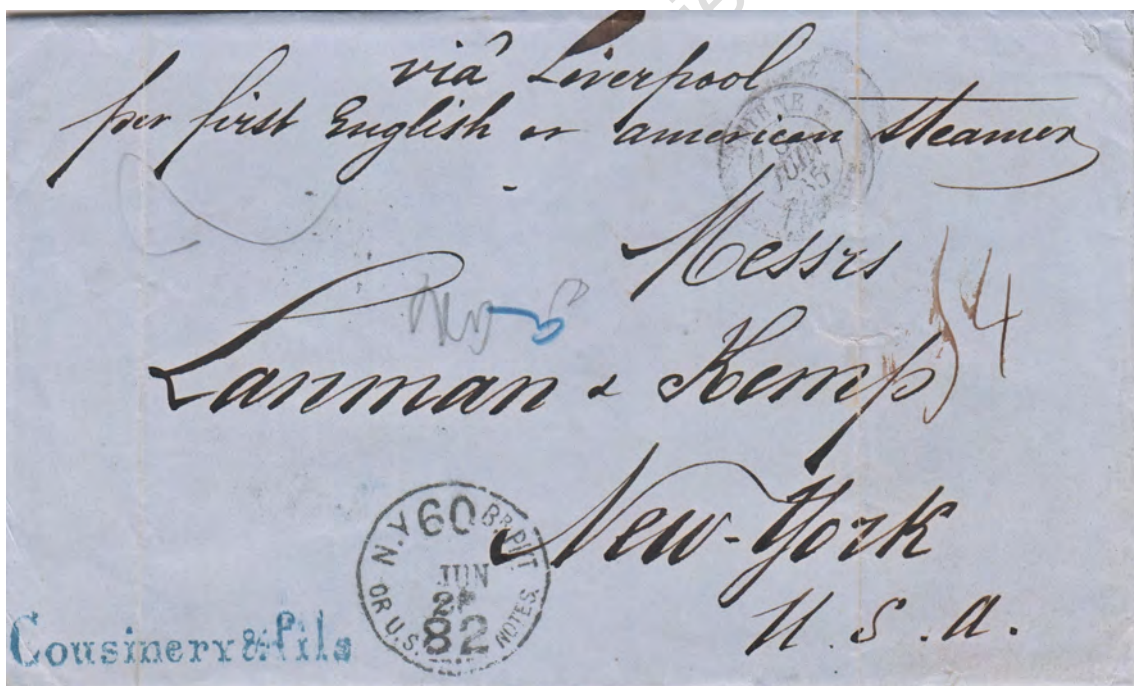 viâ Liverpool
per first English or american Steamer
Messrs
Lanman & Kemp
54
New-York
U. S. a.
N.Y 60 BR. PKT.
JUN
82
OR U.S. NOTES.
Cousinery & Fils
JUIN